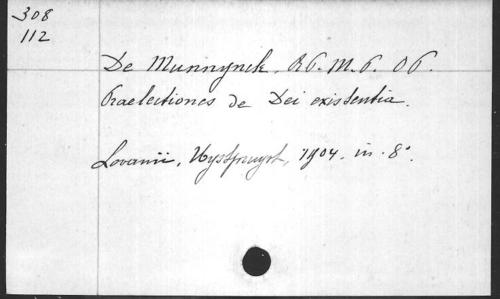 308
112
De Munnynck, R.P. M.P. O.P.
Praelectiones de Dei existentia.
Lovanii, Uystpruyst, 1904. in-8°.